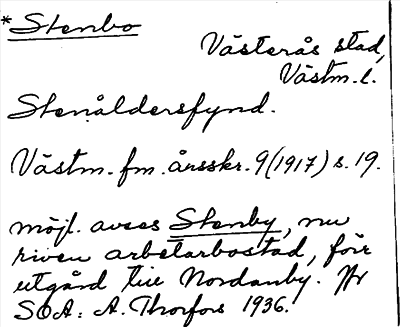 * Stenbo
Västerås stad,
Västm. l.
Stenåldersfynd.
Västm. fm. årsskr. 9 (1917) s. 19.
möjl. avses Stenby, nu
riven arbetarbostad, förr
utgård till Nordanby.
SOA: A. Thorfors 1936.